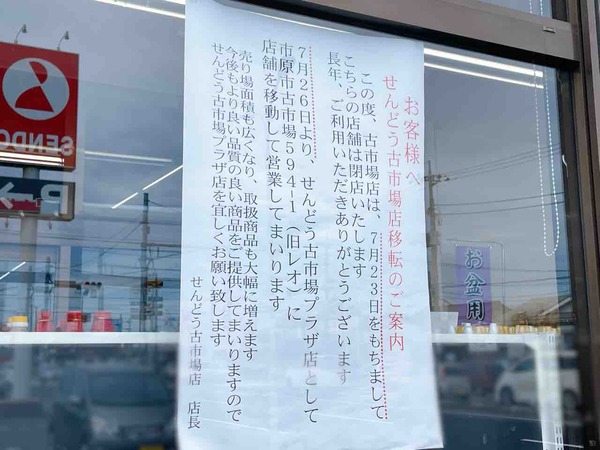 お客様へ
せんどう古市場店移転のご案内
この度、古市場店は、7月23日をもちまして
こちらの店舗は閉店いたします
長年、ご利用いただきありがとうございます
7月26日より、せんどう古市場プラザ店として
市原市古市場594-1（旧レオ）に
店舗を移動して営業してまいります
売り場面積も広くなり、取扱商品も大幅に増えます
今後もより良い品質の良い商品をご提供してまいりますので
せんどう古市場プラザ店を宜しくお願い致します
せんどう古市場店　店長
お盆用
SENDO
P